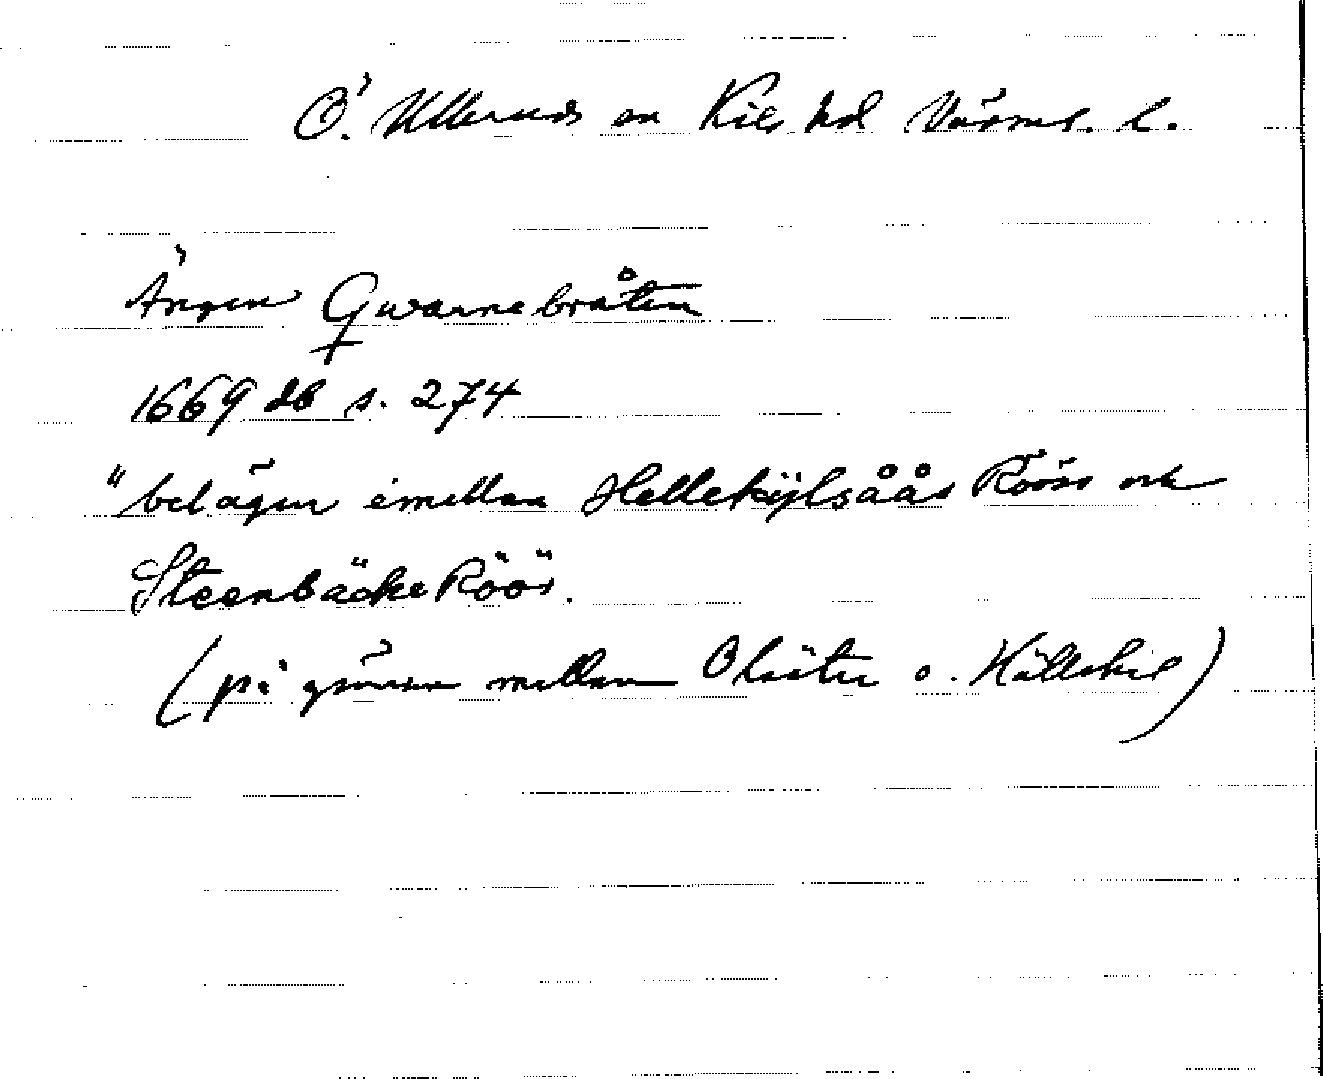 Ö. Ulleruds sn Kils hd Värml. l.
Ängen Qwarnebråten
1669 db s. 274
"belägen emellan Hellekÿlsåås Röös och
SteenbäckeRöös.
(på gränsen mellan Olsäter o. Hällekil)